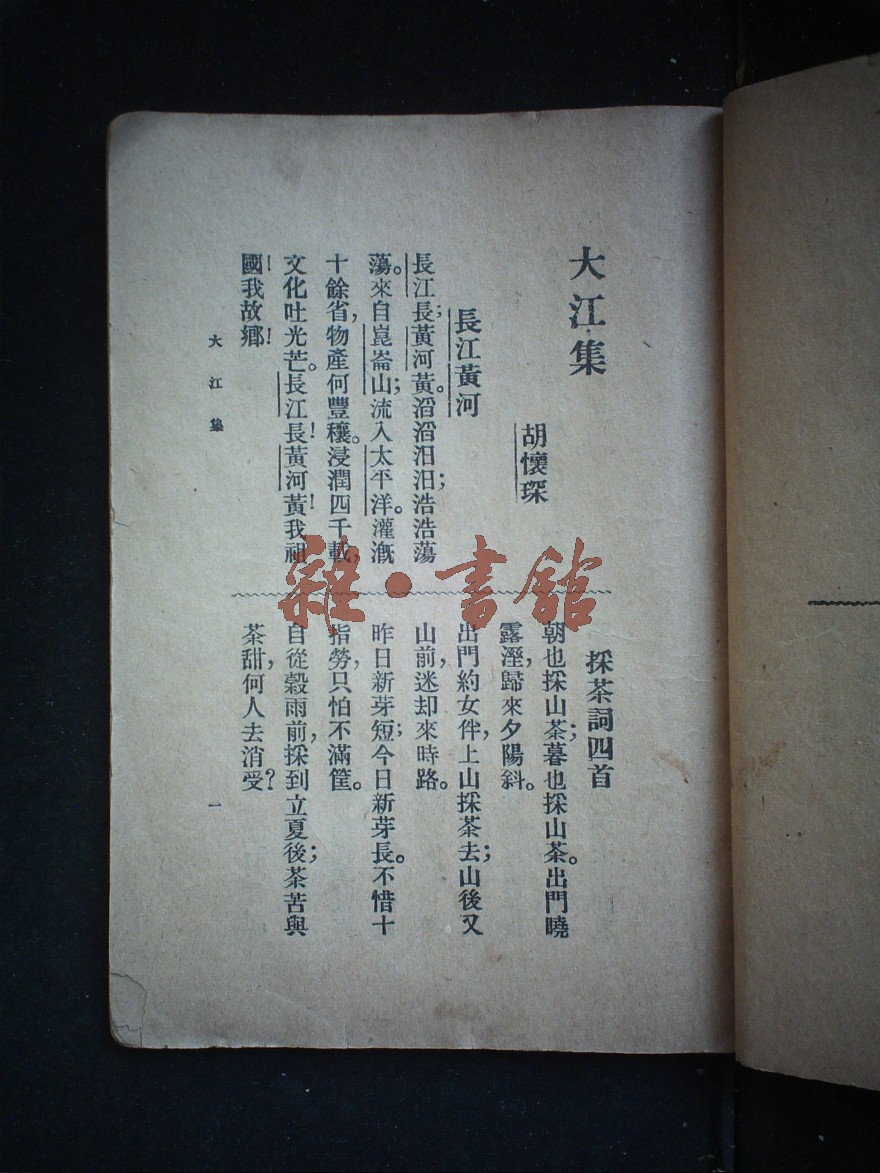 大江集
胡懷琛
長江黃河
長江長；黃河黃。滔滔汨汨；浩浩蕩
蕩。來自崑崙山；流入太平洋。灌漑
十餘省，物產何豐穰。浸潤四千載，
文化吐光芒。長江長！黃河黃！我祖
國！我故鄉！
採茶詞四首
朝也採山茶；暮也採山茶。出門曉
露溼，歸來夕陽斜。
出門約女伴，上山採茶去；山後又
山前，迷却來時路。
昨日新芽短；今日新芽長。不惜十
指勞，只怕不滿筐。
自從穀雨前，採到立夏後；茶苦與
茶甜，何人去消受？
大江集
一
雜·書館